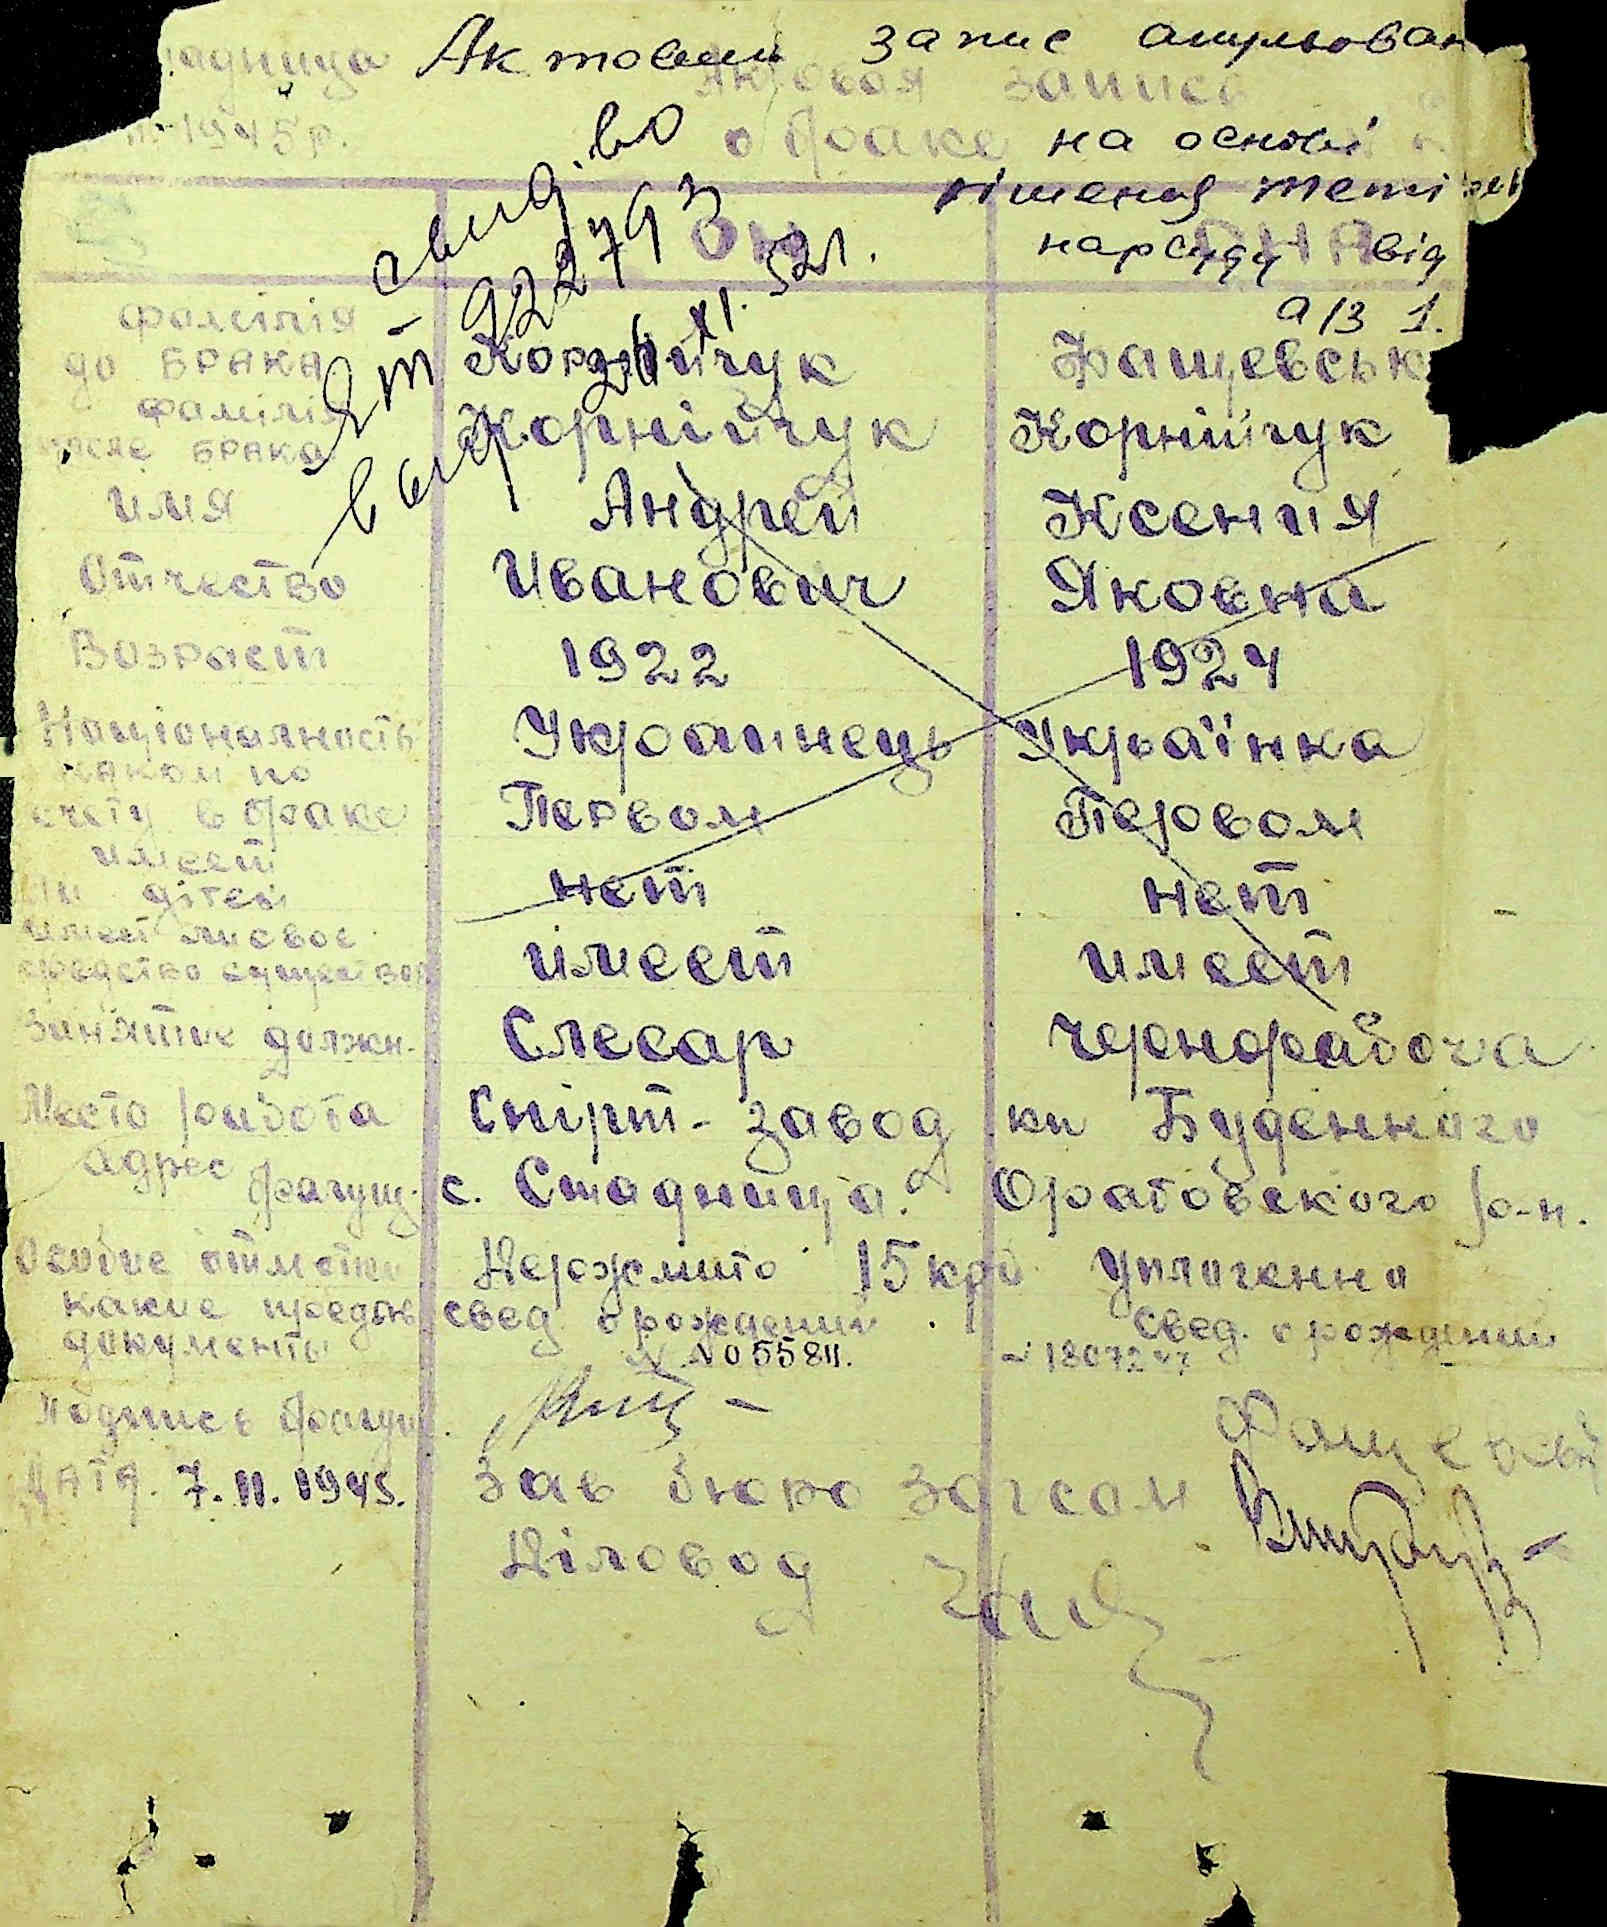 Актовий запис анульован
Актовая запись
1945р.
о браке на основі
рішення Тетіїв
нарсуду від
ОН ОНА
а/з 1.
свид. во
922793
выд. 21.
фамілія
до БРАКА Корнійчук Фащевськ
фамілія
после БРАКА Корнійчук Корнийчук
имя Андрей Ксения
Отчество Иванович Яковна
Возраст 1922 1924
Національность Украинець Українка
каком по
счету в браке Первом Первом
имеет
ли дітей нет нет
имеет ли свое
средство существов имеет имеет
Занятие должн. Слесар чернорабоча
Место работа Спірт-завод кп Буденного
адрес брачущ. с. Стадниця. Оратовского р-н.
Особые отметки Держмито 15 крб Уплаченно
какие предъяв свед о рождении. свед. о рождении
документы N 055811.
Подпись брачущ. Фащевськ
ДАТА. 7.11.1945. Зав бюро Загсом
Діловод